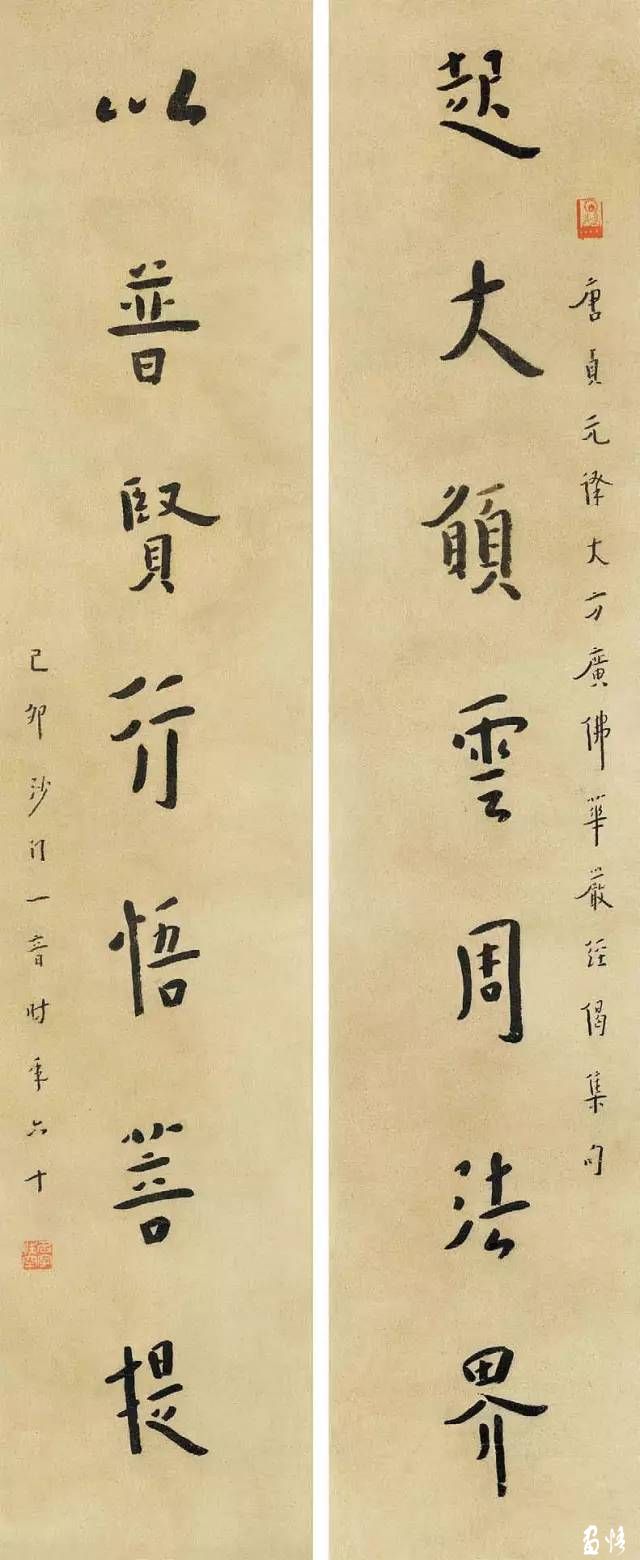 起大願雲周法界
唐貞元譯大方廣佛華嚴經偈集句
以普賢行悟菩提
己卯沙門一音時年六十